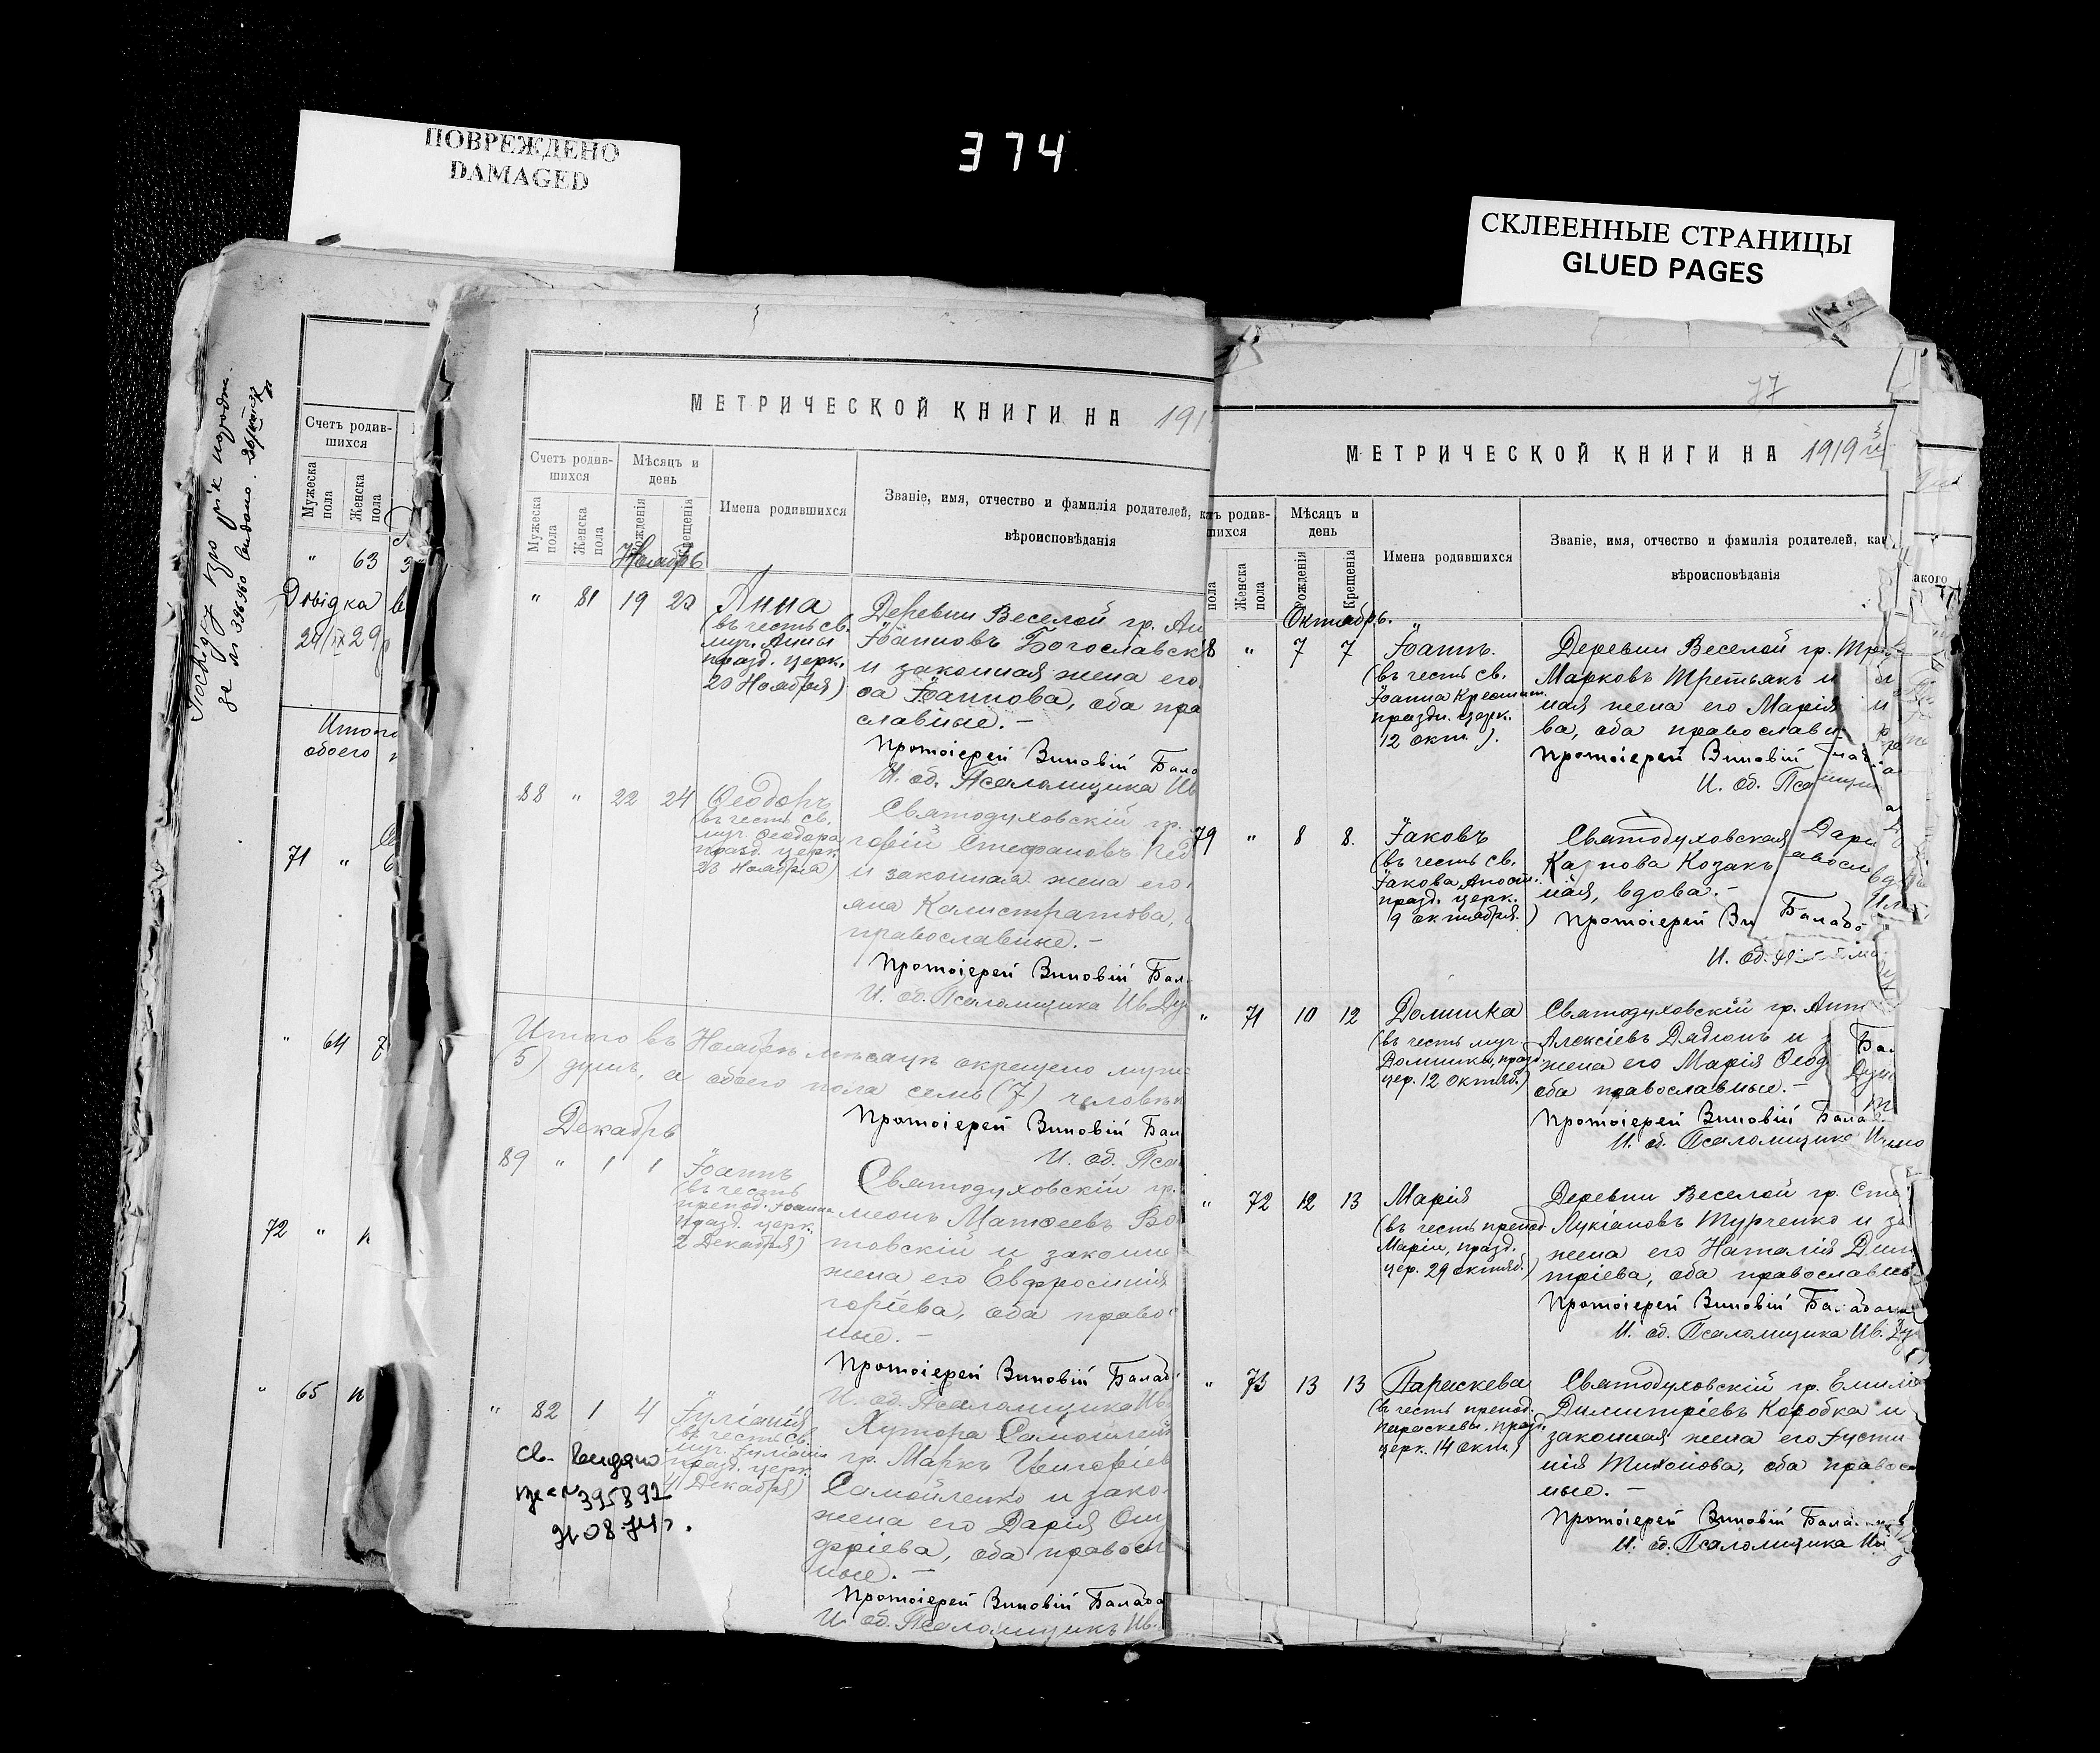 ПОВРЕЖДЕНО
DAMAGED
374
СКЛЕЕННЫЕ СТРАНИЦЫ
GLUED PAGES
Счетъ родив-
шихся
Мужеска
пола
Женска
пола
" 63
Довідка
24/IX 29р
Итого
обоего
71 "
" 64
72 "
" 65
МЕТРИЧЕСКОЙ КНИГИ НА 191
Счетъ родив-
шихся
Мѣсяцъ и
день
Мужеска
пола
Женска
пола
Рожденія
Крещенія
Имена родившихся
Званіе, имя, отчество и фамилія родителей,
вѣроисповѣданія
Ноябрь
" 81 19 20 Анна
(въ честь св.
муч. Анны
празд. церк.
20 Ноября)
Деревни Веселой гр.
Іоанновъ Богославск
и законная жена его
Іоаннова, оба пра
славные. –
Протоіерей Виновій Бала
И. об. Псаломщика Ив
88 " 22 24 Ѳеодоръ
(въ честь св.
муч. Ѳеодора
празд. церк.
23 Ноября)
Святодуховскій гр.
горій Стефановъ
и законная жена его
яна Калистратова,
православные. –
Протоіерей Виновій Бал
И. об. Псаломщика Ив. Ду
Итого въ Ноябрѣ мѣсяцѣ окрещено муж
(5) душъ, а обоего пола семь (7) человѣкъ
Протоіерей Виновій Бал
И. об. Пса
Декабрь
89 " 1 1 Іоаннъ
(въ честь
препод. Іоанна
празд. церк.
2 Декабря)
Святодуховскій гр.
меонъ Матѳеевъ Во
товскій и законн
жена его Евфросинія
горіева, оба право
ные. –
Протоіерей Виновій Балаб
И. об. Псаломщика Ив
" 82 1 4 Іуліанія
(въ честь св.
муч. Іуліаніи
празд. церк.
4 Декабря)
Хутора Самойлен
гр. Маркъ Григоріев
Самойленко и зако
жена его Дарія Ону
фріева, оба правосл
ные. –
Протоіерей Виновій Балаба
И. об. Псаломщикъ Ив.
Св. видано
395892
МЕТРИЧЕСКОЙ КНИГИ НА 1919 й
77
родив-
шихся
Мѣсяцъ и
день
пола
Женска
пола
Рожденія
Крещенія
Имена родившихся
Званіе, имя, отчество и фамилія родителей, как
вѣроисповѣданія
акого
Октябрь.
8 " 7 7 Іоаннъ.
(въ честь св.
Іоанна Крестит.
праздн. церк.
12 окт.).
Деревни Веселой гр.
Марковъ Третьякъ и
ная жена его Марія
ва, оба православн
Протоіерей Виновій
И. об. Псаломщи
79 " 8 8. Іаковъ
(въ честь св.
Іакова Апост.
празд. церк.
9 октября.)
Святодуховская Дарія
Карпова Козакъ
ная, вдова. –
Протоіерей Ви Балабо
И. об.
" 71 10 12 Домника
(въ честь муч.
Домники, празд.
цер. 12 октяб.)
Святодуховскій гр. Ант
Алексіевъ Дядюнъ и
жена его Марія Ѳеод
оба православные. –
Протоіерей Виновій Балаб
И. об. Псаломщика
" 72 12 13 Марія
(въ честь препод.
Маріи, празд.
цер. 29 октяб.)
Деревни Веселой гр. Сте
Лукіановъ Турченко и за
жена его Наталія Дим
тріева, оба православн
Протоіерей Виновій Балабан
И. об. Псаломщика Ив. Ду
" 73 13 13 Параскева
(въ честь препод.
Параскевы. празд.
церк. 14 окт.)
Святодуховскій гр. Емилі
Димитріевъ Коробка и
законная жена его Іусти
нія Тихонова, оба правос
ные. –
Протоіерей Виновій Бала
И. об. Псаломщика